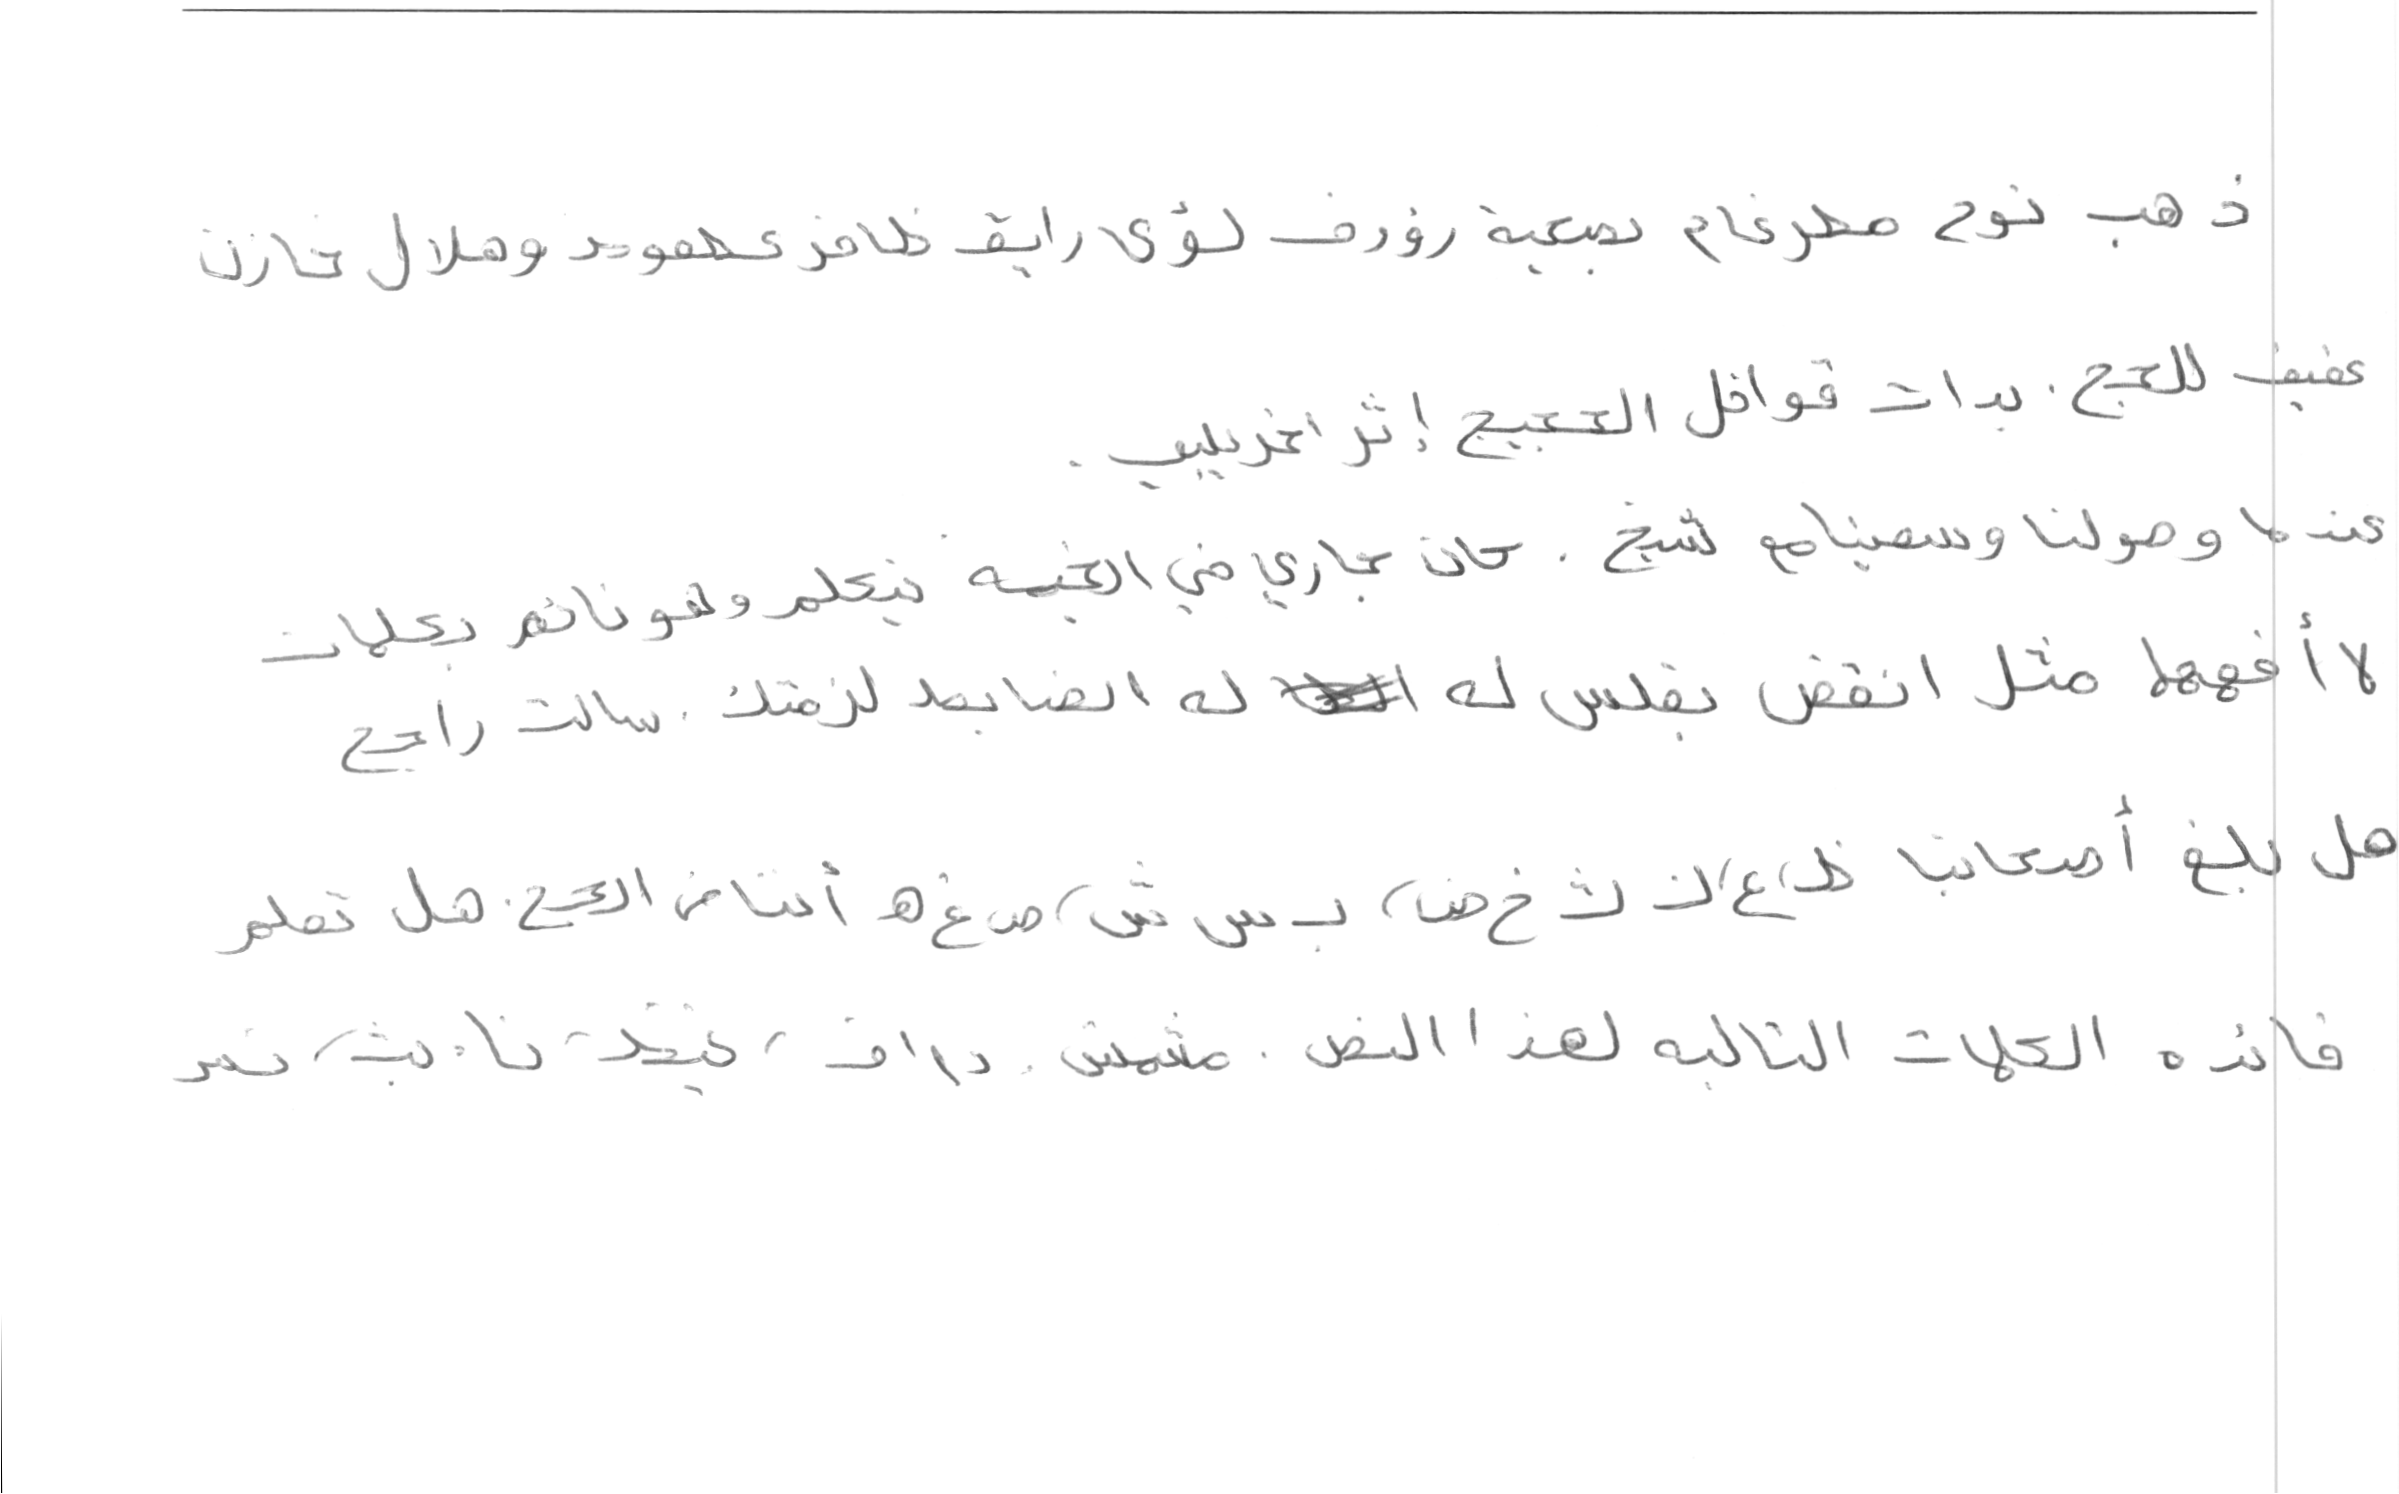 ذهب نوح مطرغام بصحبة رؤوف لؤى رايق ظافر عطعوط وهلال خازن
عفيف للحج. بدات قوافل الحجيج إثر اخر
عندما وصولنا وسمعينا مع شيخ. كان جاري في الخيمه يتكلم وهو نائم بكلمات
لا أفهمها مثل انقض بفلس له له الضابط لزمتك. سالت راجح
هل بلغ أصحاب ظ، ع، ك ث خ ض، ب س ش، ص غ ه أنتاء الحج. هل تعلم
فائده الكلمات التاليه لهذا النص. مشمش.